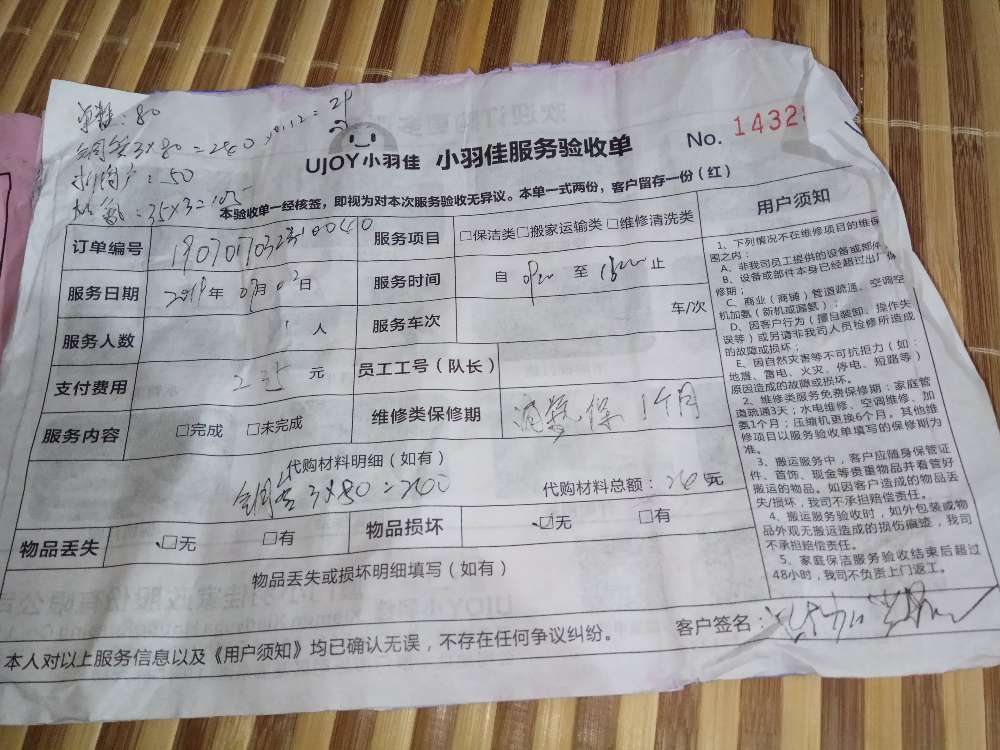 80
3×80=240×0.12=29
:50
:35×3=105
UJOY小羽佳 小羽佳服务验收单
No. 1432
本验收单一经核签,即视为对本次服务验收无异议。本单一式两份,客户留存一份(红)
订单编号
服务项目 □保洁类□搬家运输类□维修清洗类
服务日期 2019年07月02日
服务时间 自 至 止
服务人数 1 人
服务车次 车/次
支付费用 元
员工工号(队长)
服务内容 □完成 □未完成
维修类保修期 保1个月
代购材料明细(如有)
3×80=240
代购材料总额:240元
物品丢失 ☑无 □有
物品损坏 ☑无 □有
物品丢失或损坏明细填写(如有)
客户签名:
本人对以上服务信息以及《用户须知》均已确认无误,不存在任何争议纠纷。
用户须知
1、下列情况不在维修项目的维保
围之内:
A、非我司员工提供的设备或部件
B、设备或部件本身已经超过出厂保
修期;
C、商业(商铺)管道疏通、空调空
机加氨(新机或漏氨);
D、因客户行为(擅自装卸、操作失
误等)或另请非我司人员检修所造成
的故障或损坏;
E、因自然灾害等不可抗拒力(如:
地震、雷电、火灾、停电、短路等)
原因造成的故障或损坏。
2、维修类服务免费保修期:家庭管
道疏通3天;水电维修、空调维修、加
氨1个月;压缩机更换6个月。其他维
修项目以服务验收单填写的保修期为
准。
3、搬运服务中,客户应随身保管证
件、首饰、现金等贵重物品并看管好
搬运的物品。如因客户造成的物品丢
失/损坏,我司不承担赔偿责任。
4、搬运服务验收时,如外包装或物
品外观无搬运造成的损伤痕迹,我司
不承担赔偿责任。
5、家庭保洁服务验收结束后超过
48小时,我司不负责上门返工。